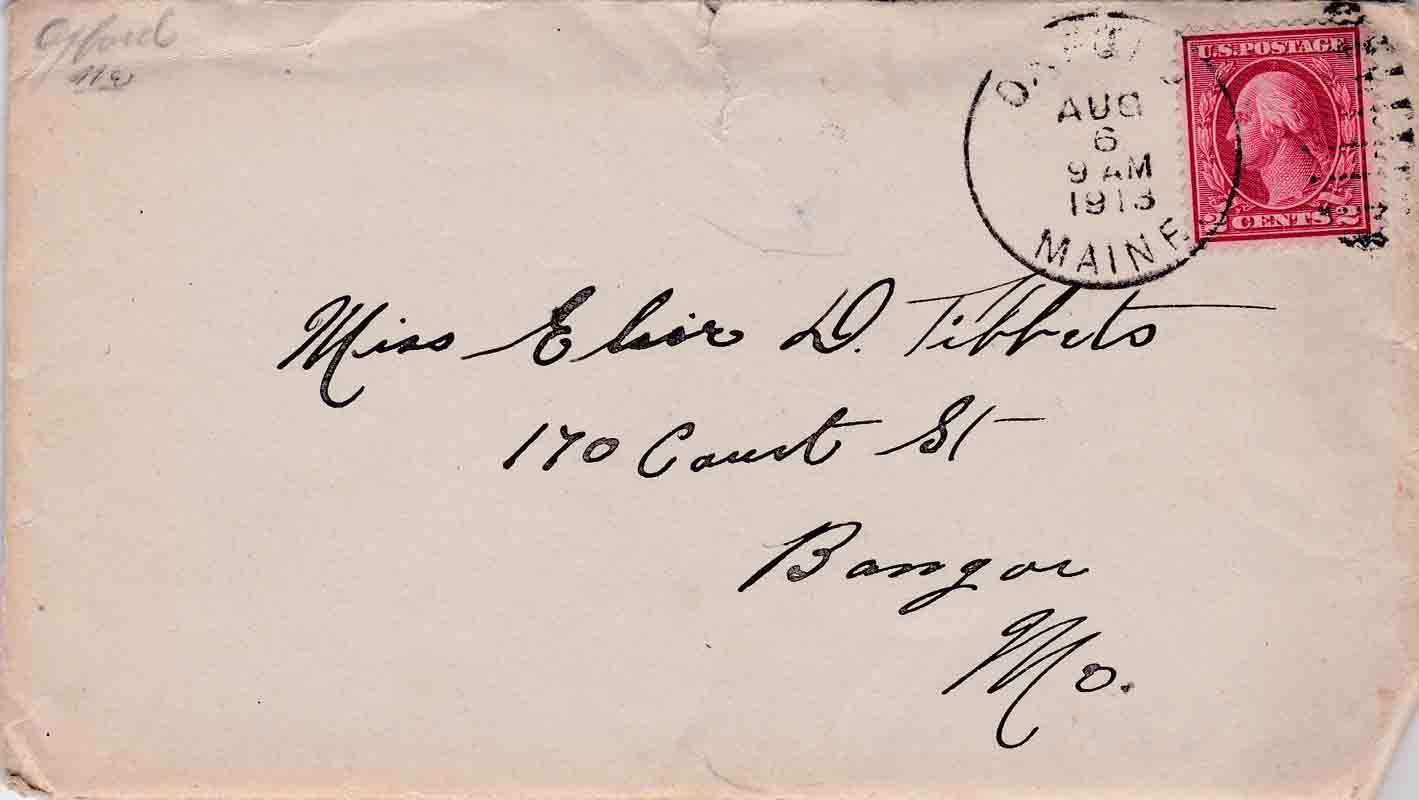 Oxford
Me
AUG
6
9 AM
1913
MAINE
U.S. POSTAGE
2 CENTS 2
Miss Elsie D. Tibbets
170 Court St
Bangor
Me.